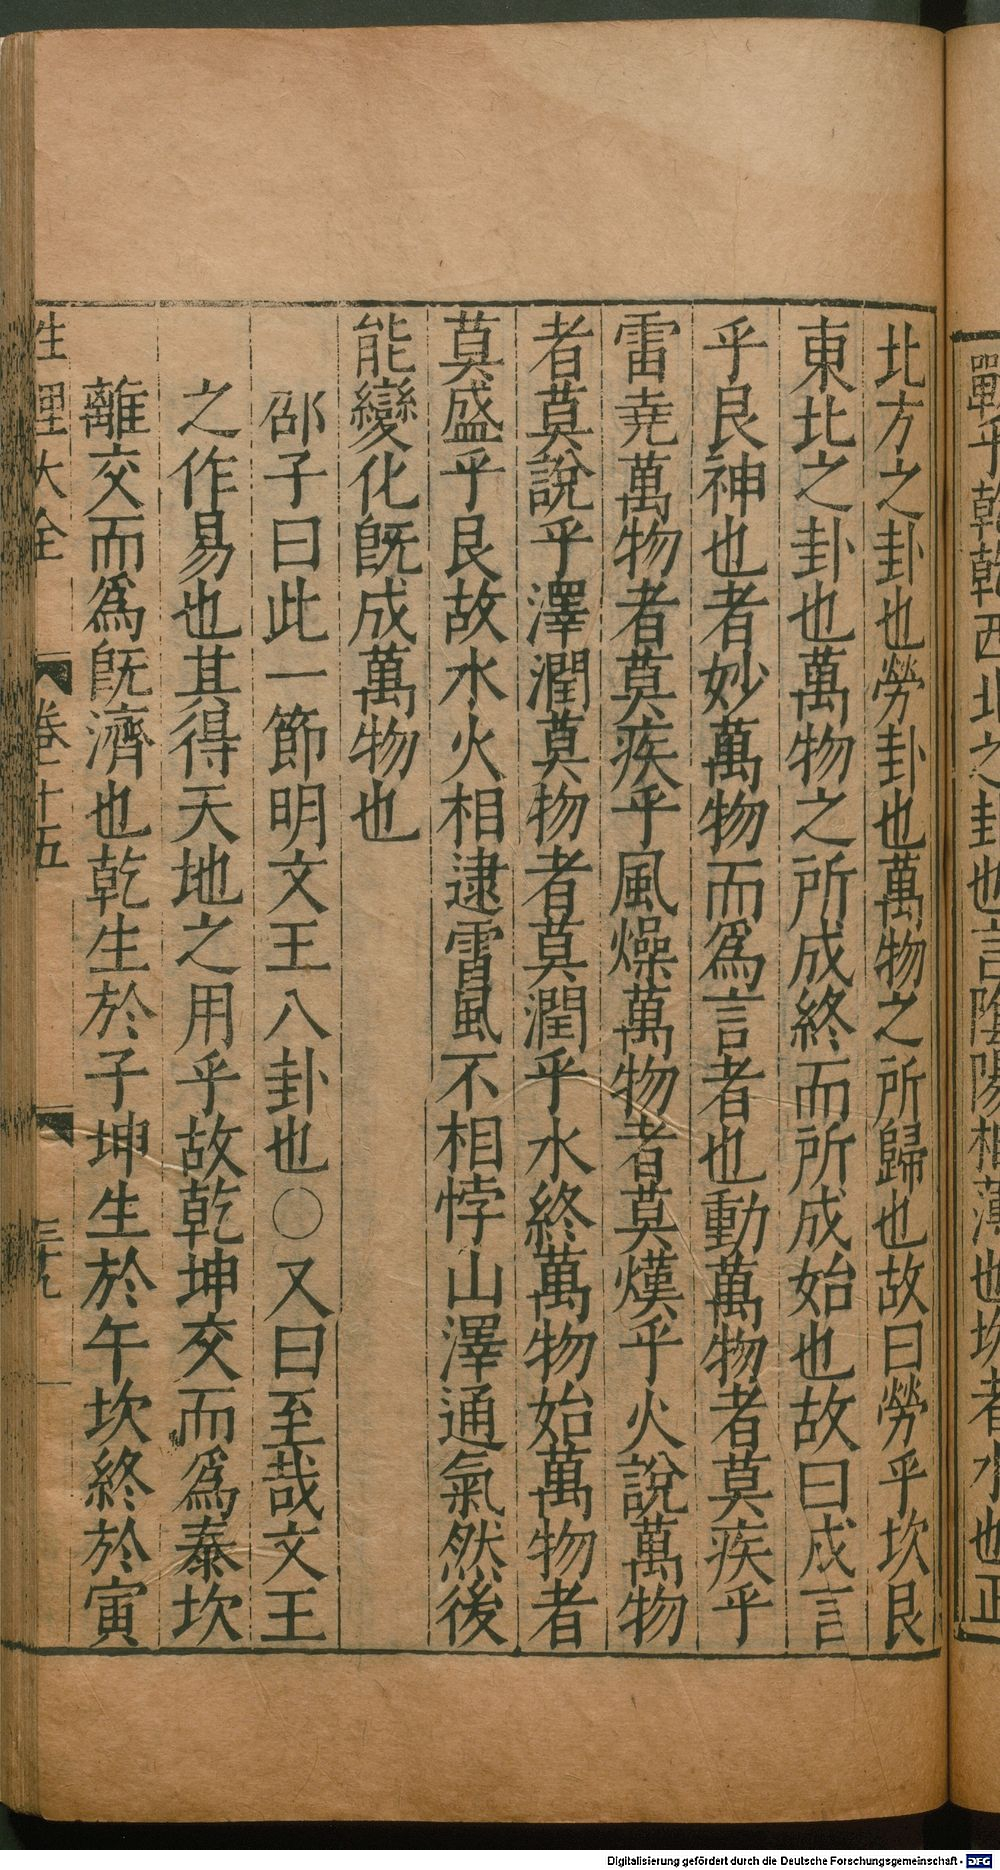 戰乎乾乾西北之卦也言陰陽相薄也坎者水也正
北方之卦也勞卦也萬物之所歸也故曰勞乎坎艮
東北之卦也萬物之所成終而所成始也故曰成言
乎艮神也者妙萬物而爲言者也動萬物者莫疾乎
雷撓萬物者莫疾乎風燥萬物者莫熯乎火說萬物
者莫說乎澤潤萬物者莫潤乎水終萬物始萬物者
莫盛乎艮故水火相逮雷風不相悖山澤通氣然後
能變化旣成萬物也
邵子曰此一節明文王八卦也○又曰至哉文王
之作易也其得天地之用乎故乾坤交而爲泰坎
離交而爲旣濟也乾生於子坤生於午坎終於寅
性理大全 卷十五 三十九
Digitalisierung gefördert durch die Deutsche Forschungsgemeinschaft - DFG